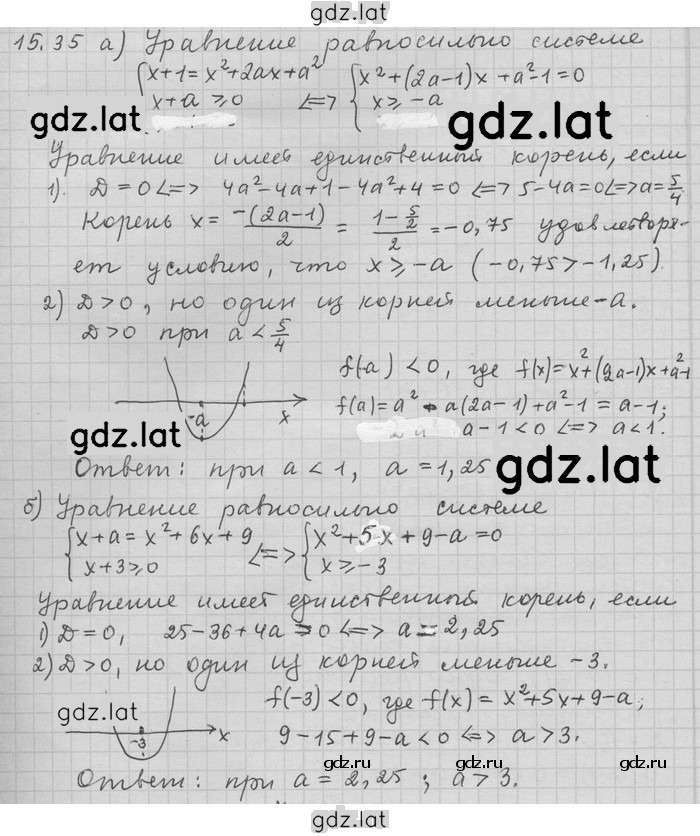 gdz.lat
15.35 а) Уравнение равносильно системе
{x+1=x²+2ax+a² {x²+(2a-1)x+a²-1=0
x+a≥0 <=> x≥-a
gdz.lat gdz.lat
Уравнение имеет единственный корень, если
1). D=0<=> 4a²-4a+1-4a²+4=0 <=> 5-4a=0<=>a=5/4
Корень x= -(2a-1)/2 = (1-5/2)/2 =-0,75 удовлетворя-
ет условию, что x≥-a (-0,75>-1,25).
2) D>0, но один из корней меньше -a.
D>0 при a<5/4
f(-a)<0, где f(x)=x²+(2a-1)x+a²-1
-a x f(a)=a²-a(2a-1)+a²-1=a-1;
gdz.lat a-1<0 <=> a<1.
Ответ: при a<1, a=1,25
gdz.lat
б) Уравнение равносильно системе
{x+a=x²+6x+9 <=> {x²+5x+9-a=0
x+3≥0 x≥-3
Уравнение имеет единственный корень, если
1) D=0, 25-36+4a=0 <=> a=2,25
2) D>0, но один из корней меньше -3.
gdz.lat f(-3)<0, где f(x)=x²+5x+9-a;
-3 x 9-15+9-a<0 <=> a>3.
gdz.ru gdz.ru gdz.ru
Ответ: при a=2,25; a>3.
gdz.lat